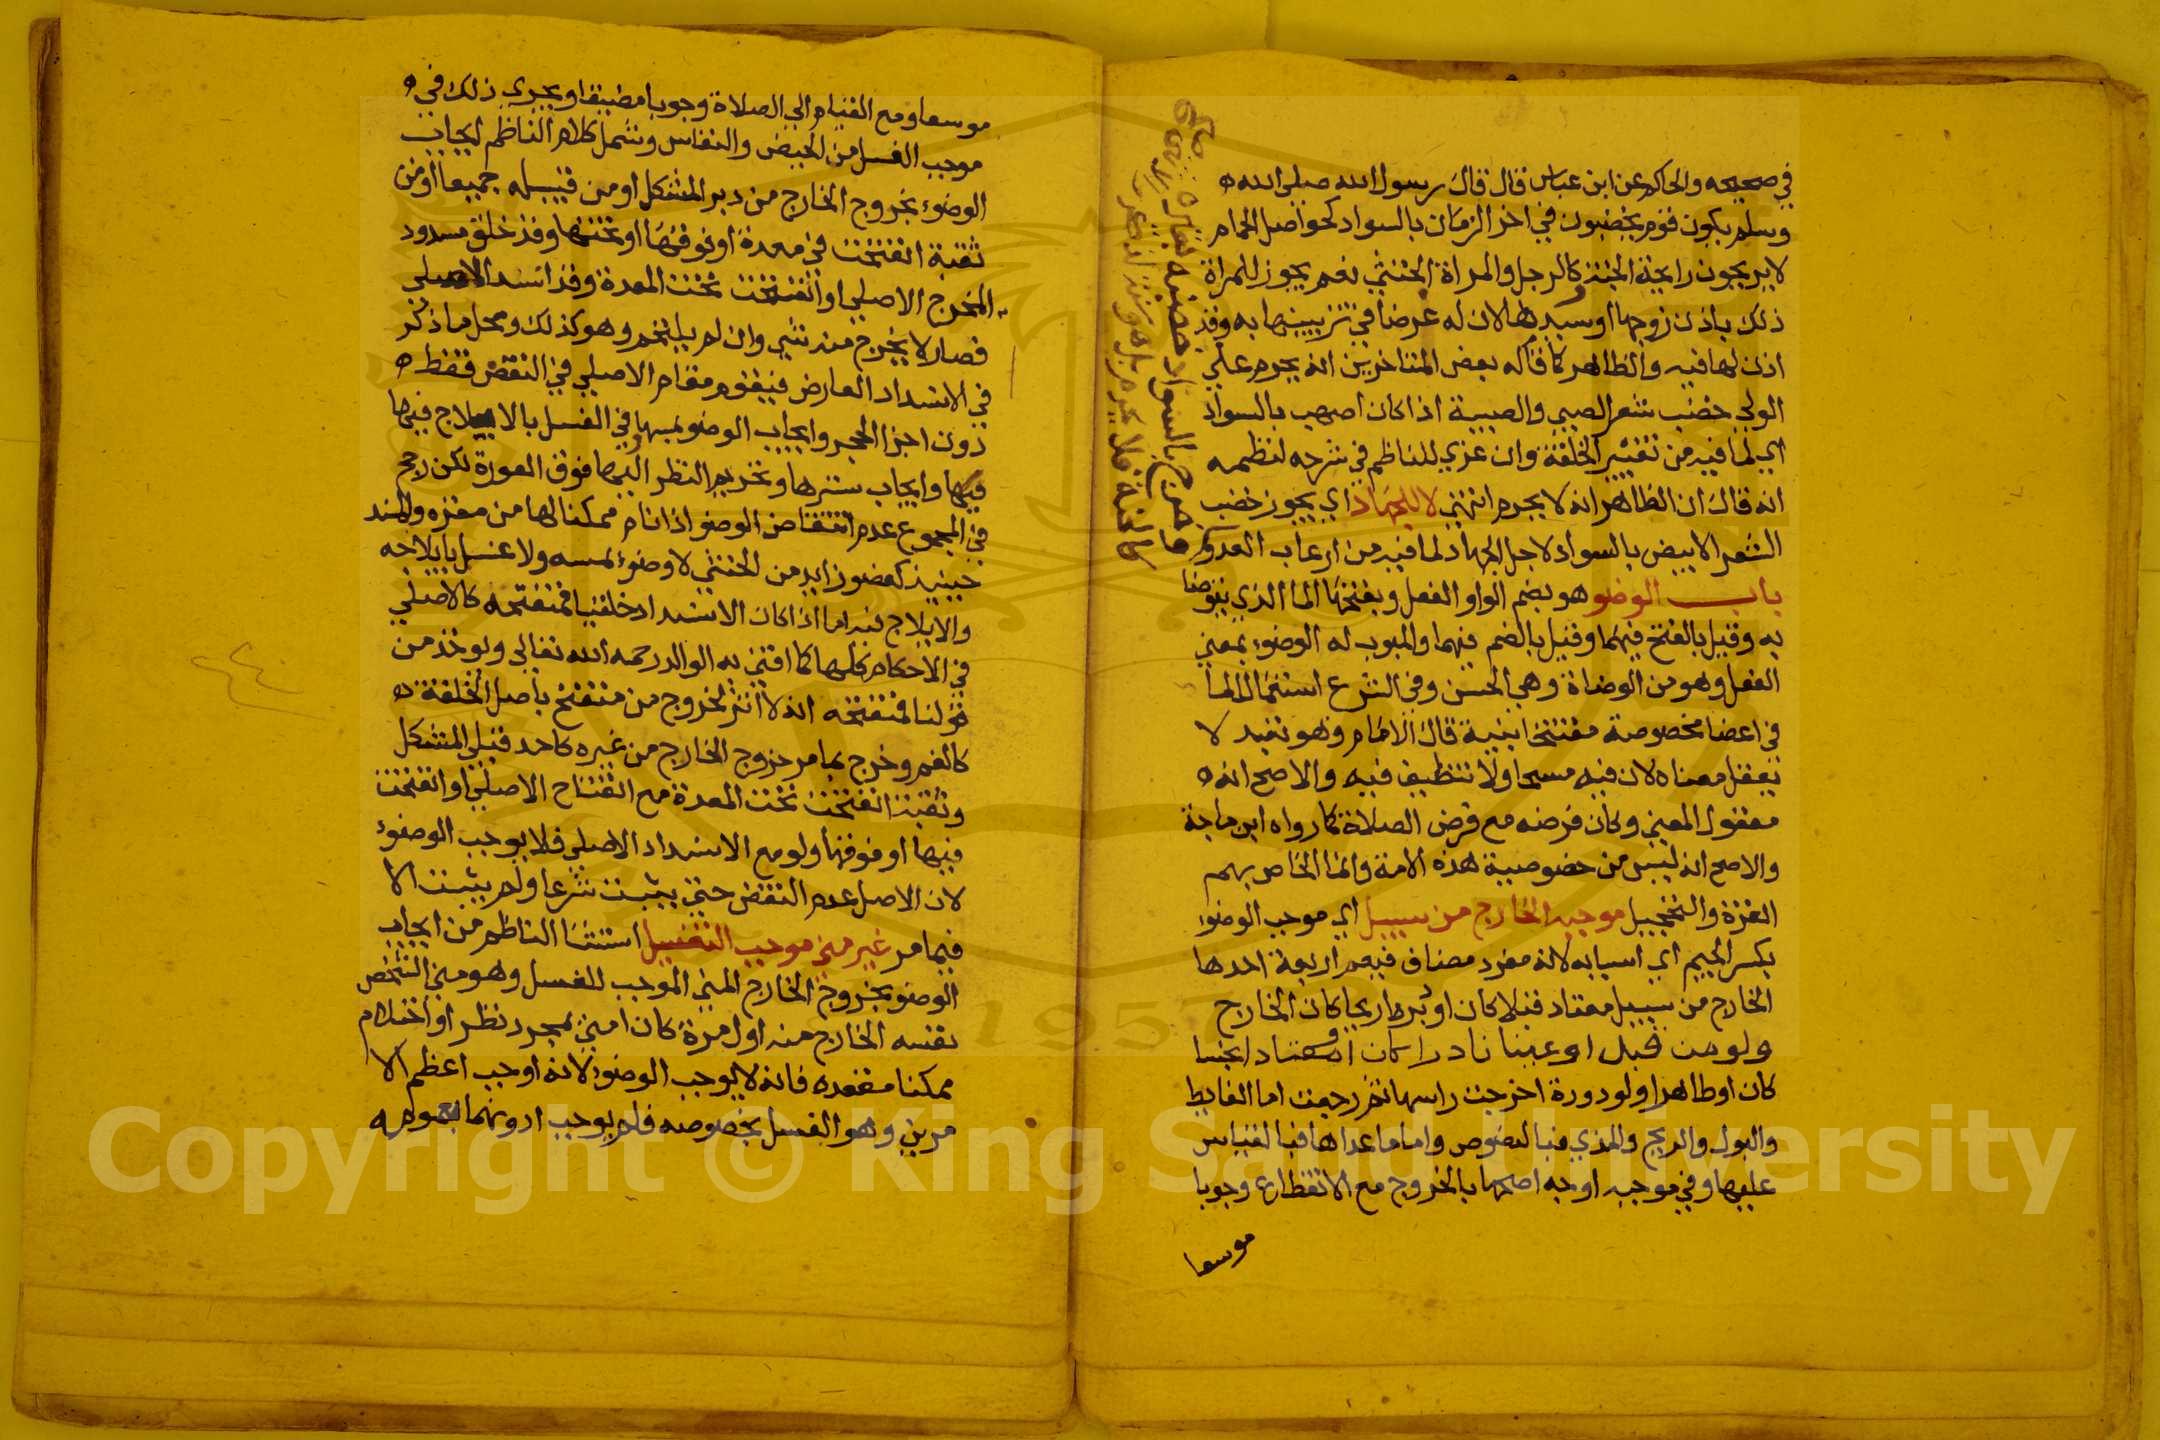 في صحيحه والحاكم عن ابن عباس قال قال رسول الله صلى الله ه
وسلم يكون قوم يخضبون في اخر الزمان بالسواد كحواصل الحمام
لا يريحون رايحة الجنة وكالرجل والمراة الخنثى نعم يجوز للمراة
ذلك باذن زوجها او سيدها لان له غرضا في تزيينها به وقد
اذن لها فيه والظاهر كما قاله بعض المتاخرين انه يحرم على
الولي خضب شعر الصبي والصبية اذا كان اصهب بالسواد
اي لما فيه من تغيير الخلقة وان عزي للناظم في شرحه لنظمه
انه قال ان الظاهر انه لا يحرم انتهى لا للجهاد اي يجوز خضب
الشعر الابيض بالسواد لاجل الجهاد لما فيه من ارعاب العدو
باب الوضو هو بضم الواو الفعل وبفتحها الما الذي يتوضا
به وقيل بالفتح فيهما وقيل بالضم فيهما والمبوب له الوضوء بمعنى
الفعل وهو من الوضاة وهي الحسن وفي الشرع استعمال الما
في اعضا مخصوصة مفتتحا بنية قال الامام وهو تعبد لا
يعقل معناه لان فيه مسحا ولا تنظيف فيه والاصح انه ه
معقول المعنى وكان فرضه مع فرض الصلاة كما رواه ابن ماجة
والاصح انه ليس من خصوصية هذه الامة وانما الخاص بهم
الغرة والتحجيل موجبه الخارج من سبيل اي موجب الوضوء
بكسر الجيم اي اسبابه لانه مفرد مضاف فيعم اربعة احدها
الخارج من سبيل معتاد قبلا كان او دبرا ريحا كان الخارج
ولو من قبل او عينا نادرا كان او معتادا نجسا
كان او طاهرا ولو دودة اخرجت راسها ثم رجعت اما الغايط
والبول والريح والمذي فبالنصوص واما ما عداها فبالقياس
عليها وفي موجبه اوجه اصحها بالخروج مع الانقطاع وجوبا
موسعا
موسعا ومع القيام الى الصلاة وجوبا مضيقا ويجري ذلك في ه
موجب الغسل من الحيض والنفاس وشمل كلام الناظم ايجاب
الوضوء بخروج الخارج من دبر المشكل او من قبيله جميعا او من
ثقبة انفتحت في معدة او فوقها او تحتها وقد خلق مسدود
المخرج الاصلي او انفتحت تحت المعدة وقد انسد الاصلي
فصار لا يخرج منه شي وان لم يلتحم وهو كذلك ومحل ما ذكر
في الانسداد العارض فيقوم مقام الاصلي في النقض فقط ه
دون اجزا الحجر وايجاب الوضو بمسها وفي الغسل بالايلاج فيها
فيها وايجاب سترها وتحريم النظر اليها فوق العورة لكن رجح
في المجموع عدم انتقاض الوضو اذا نام ممكنا لها من مقره والمنسد
حينيذ كعضو زايد من الخنثى لا وضوء بمسه ولا غسل بايلاجه
والايلاج فيه اما اذا كان الانسداد خلقيا فمنفتحه كالاصلي
في الاحكام كلها كما افتى به الوالد رحمه الله تعالى ويوخذ من
قولنا لمنفتحه انه لا اثر لخروج من منفتح باصل الخلقة ه
كالفم وخرج بما مر خروج الخارج من غيره كاحد قبلي المشكل
وثقبة انفتحت تحت المعدة مع انفتاح الاصلي او انفتحت
فيها او فوقها ولو مع الانسداد الاصلي فلا يوجب الوضوء
لان الاصل عدم النقض حتى يثبت شرعا ولم يثبت الا
فيما مر غير مني موجب التغسيل استثنا الناظم من ايجاب
الوضو بخروج الخارج المني الموجب للغسل وهو مني الشخص
نفسه الخارج منه اول مرة كان امنى بمجرد نظر او احتلام
ممكنا مقعده فانه لا يوجب الوضوء لانه اوجب اعظم الا
مرين وهو الغسل بخصوصه فلم يوجب ادونهما بعمومه
Copyright © King Saud University
1957